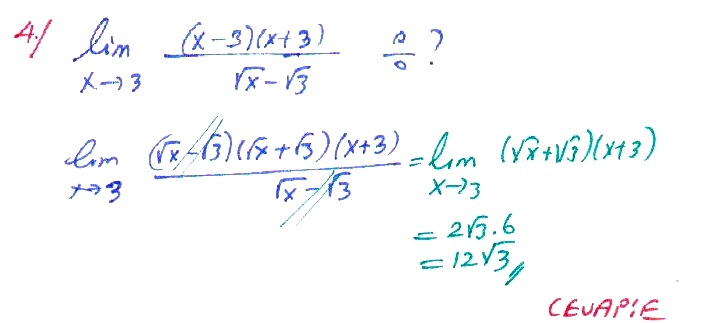 4./ lim x→3 (x-3)(x+3) / √x-√3   0/0 ?
lim x→3 (√x-√3)(√x+√3)(x+3) / √x-√3 = lim x→3 (√x+√3)(x+3)
= 2√3.6
= 12√3 //
CEVAP:E